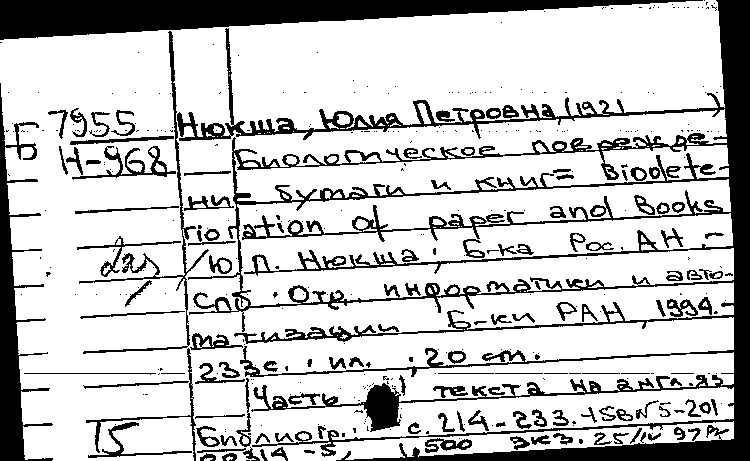 Б 7955 Нюкша, Юлия Петровна, (1921 )
Н-968 Биологическое поврежде-
ние бумаги и книг = Biodete-
rioration of paper and Books
/Ю П. Нюкша; Б-ка Рос. АН .-
СПб : Отд. информатики и авто-
матизации Б-ки РАН, 1994.-
233с. : ил. ; 20 cm.
Часть текста на англ. яз
15 Библиогр.: с. 214-233. -ISBN 5-201-
22314-5, 1,500 экз.